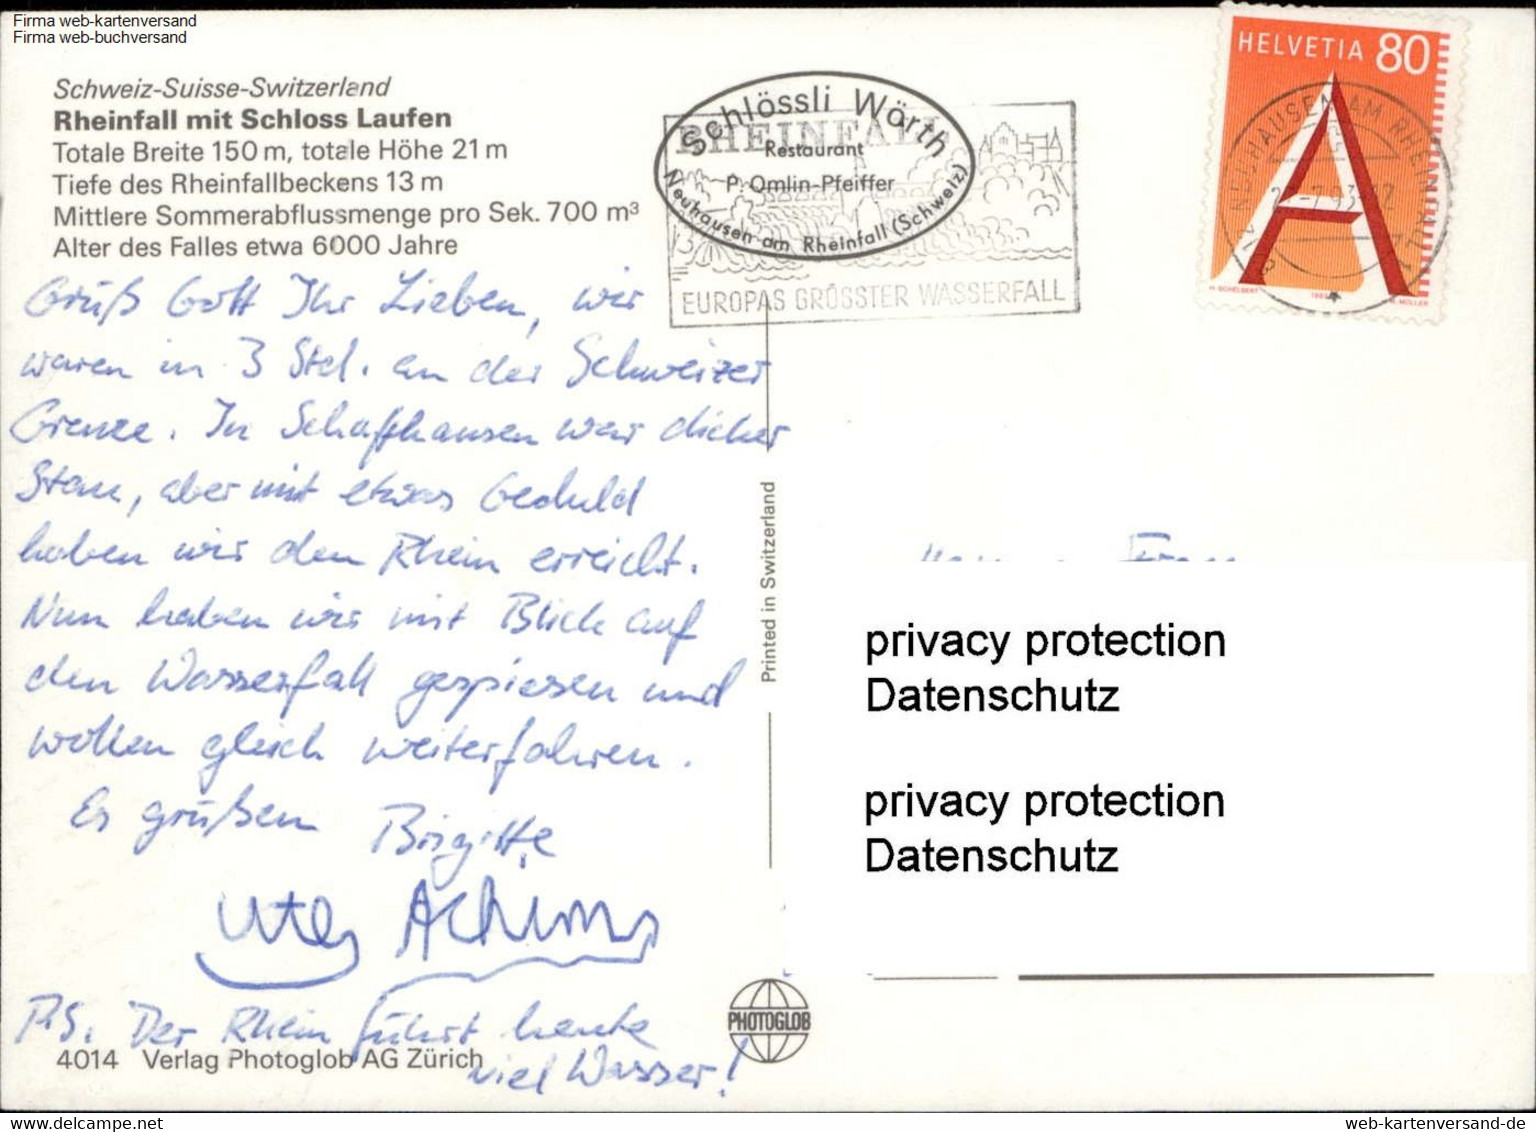 Firma web-kartenversand
Firma web-buchversand
Schweiz-Suisse-Switzerland
Rheinfall mit Schloss Laufen
Totale Breite 150 m, totale Höhe 21 m
Tiefe des Rheinfallbeckens 13 m
Mittlere Sommerabflussmenge pro Sek. 700 m³
Alter des Falles etwa 6000 Jahre
Grüß Gott Ihr Lieben, wir
waren in 3 Std. an der Schweizer
Grenze. In Schaffhausen war dicker
Stau, aber mit etwas Geduld
haben wir den Rhein erreicht.
Nun haben wir mit Blick auf
den Wasserfall gespiesen und
wollen gleich weiterfahren.
Es grüßen Brigitte
P.S. Der Rhein führt heute
viel Wasser!
4014 Verlag Photoglob AG Zürich
Printed in Switzerland
PHOTOGLOB
RHEINFALL
EUROPAS GRÖSSTER WASSERFALL
Schlössli Wörth
Restaurant
P. Omlin-Pfeiffer
Neuhausen am Rheinfall (Schweiz)
HELVETIA 80
A
NEUHAUSEN AM RHEINFALL
privacy protection
Datenschutz
privacy protection
Datenschutz
https://www.delcampe.net
web-kartenversand-de